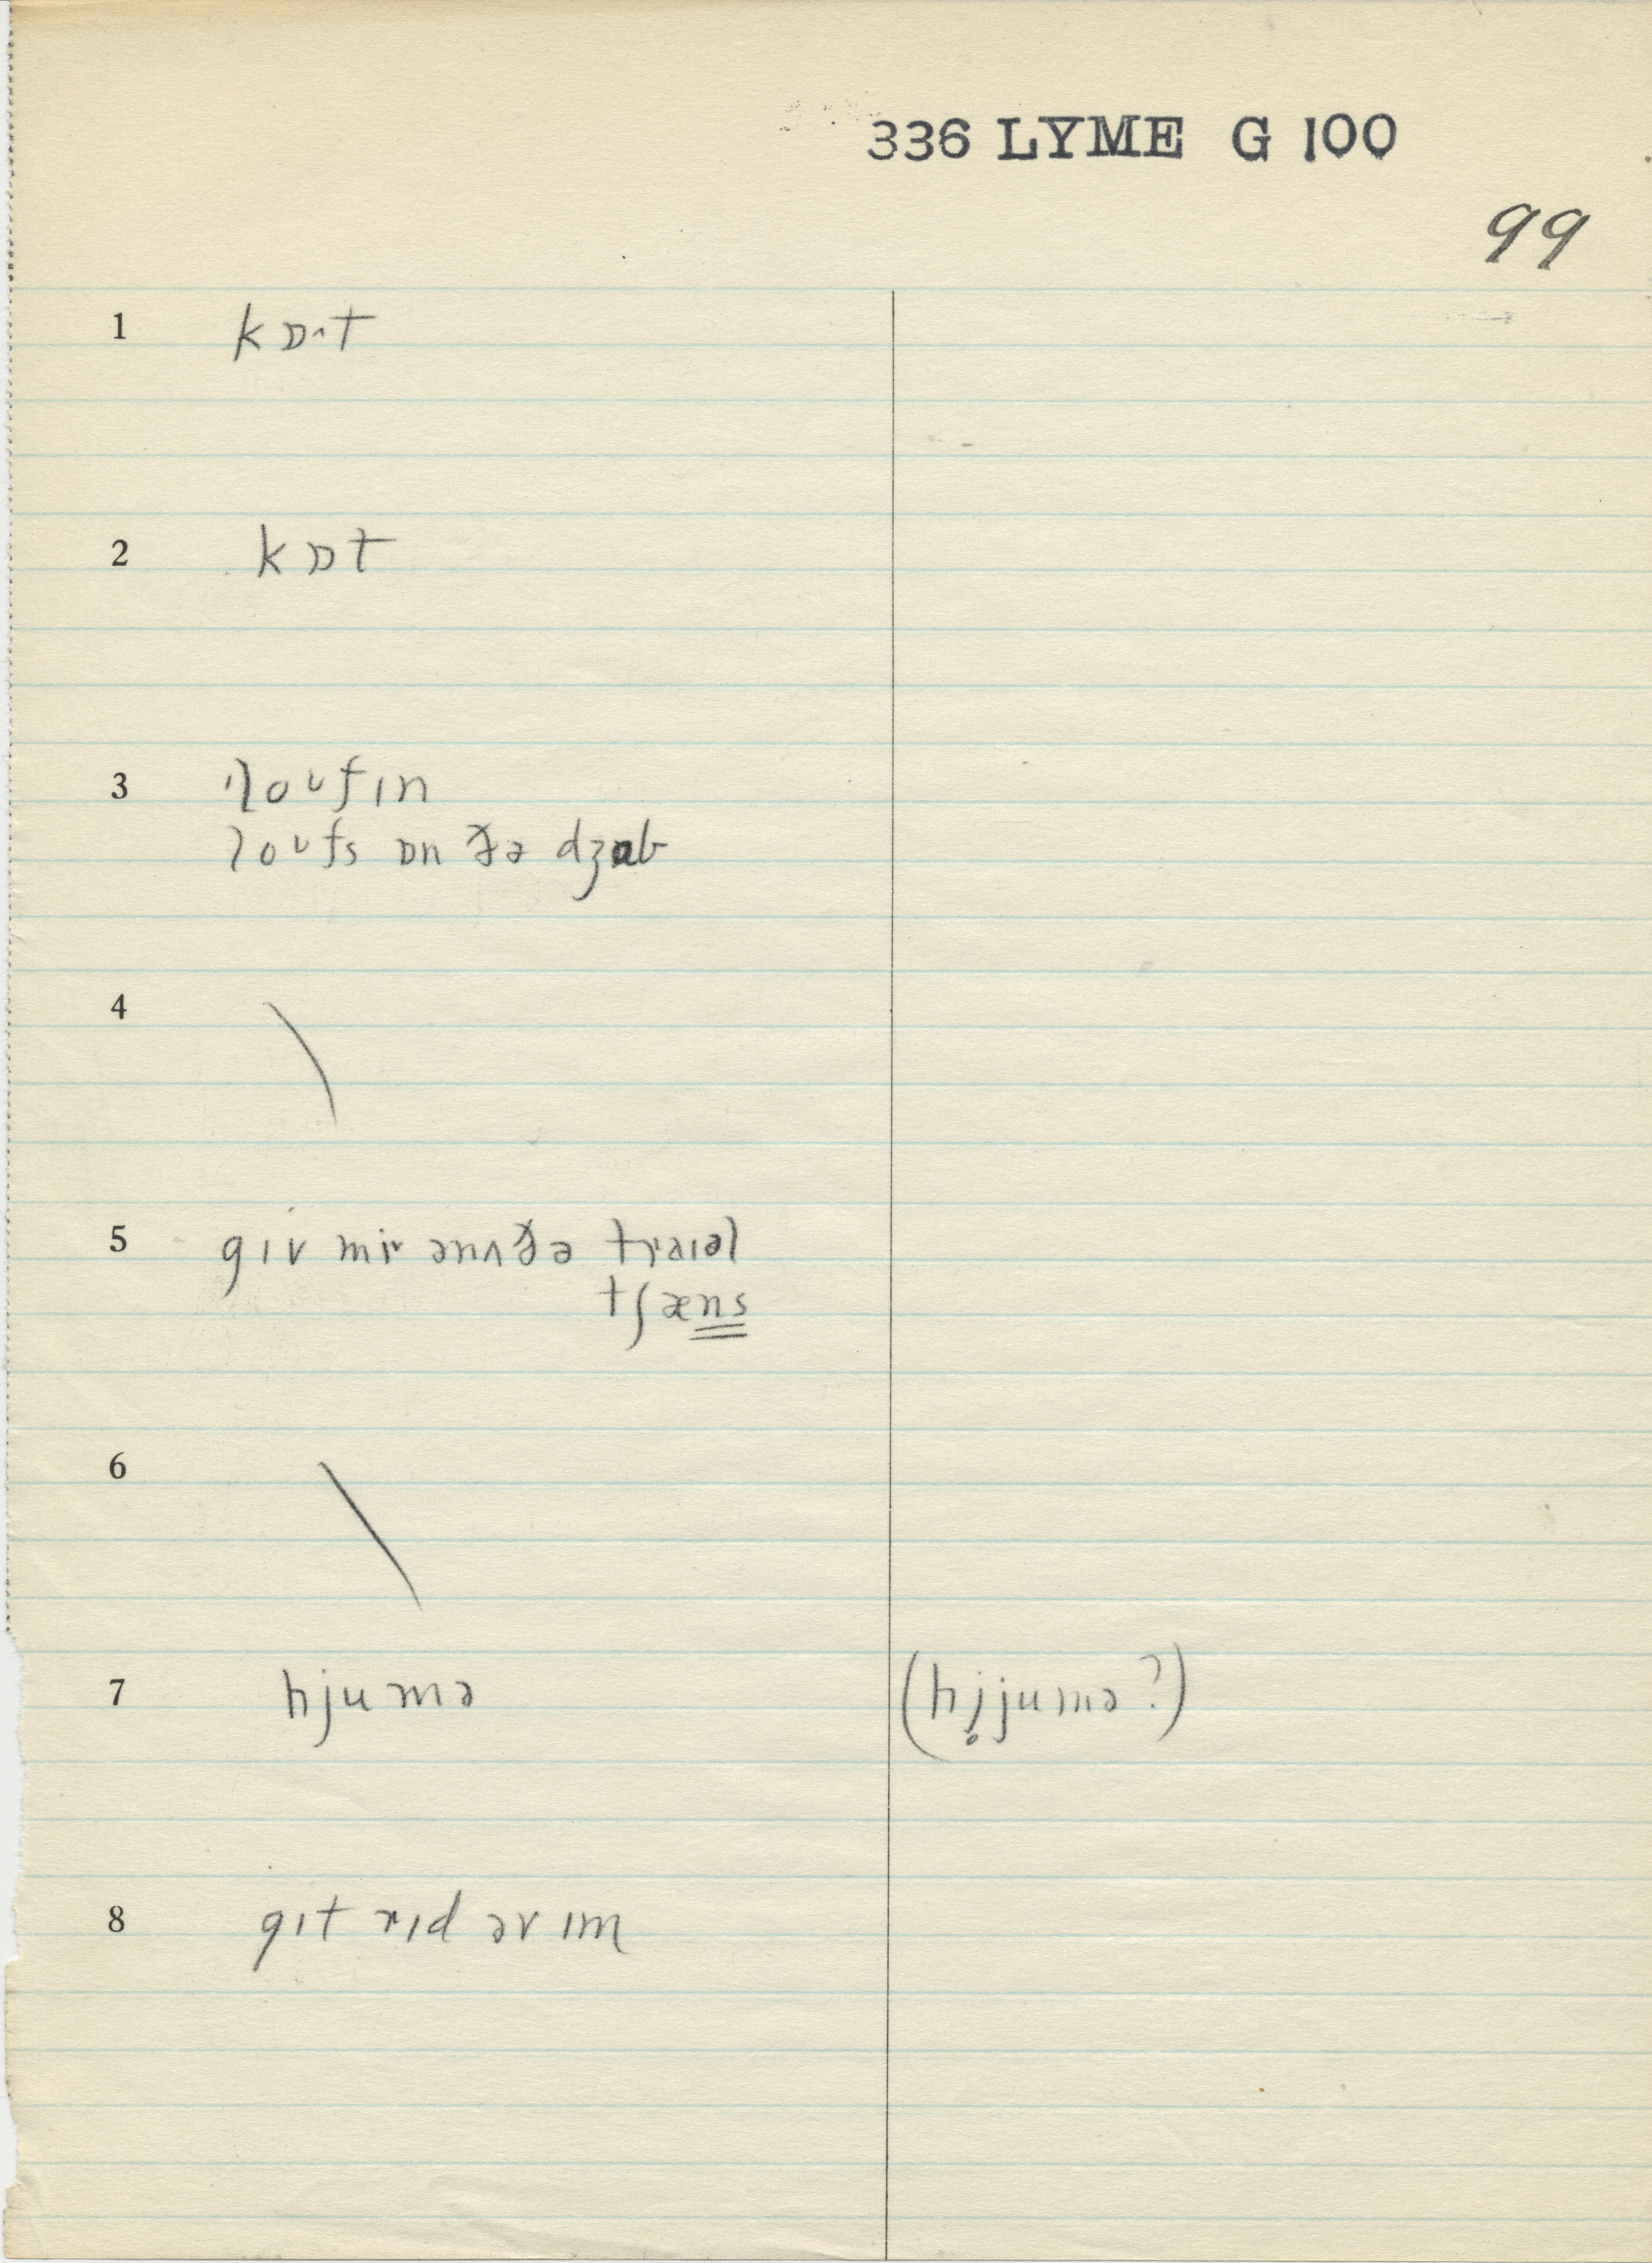 336 LYME G 100
99
1 kɒ^t
2 kɒt
3 'loʊfɪn
loʊfs ɒn ðə dʒɑb
4
5 gɪv miˇ ənʌðə traɪəl
tʃæns
6
7 hjumə (hj̥jumə?)
8 gɪt rɪd əv ɪm